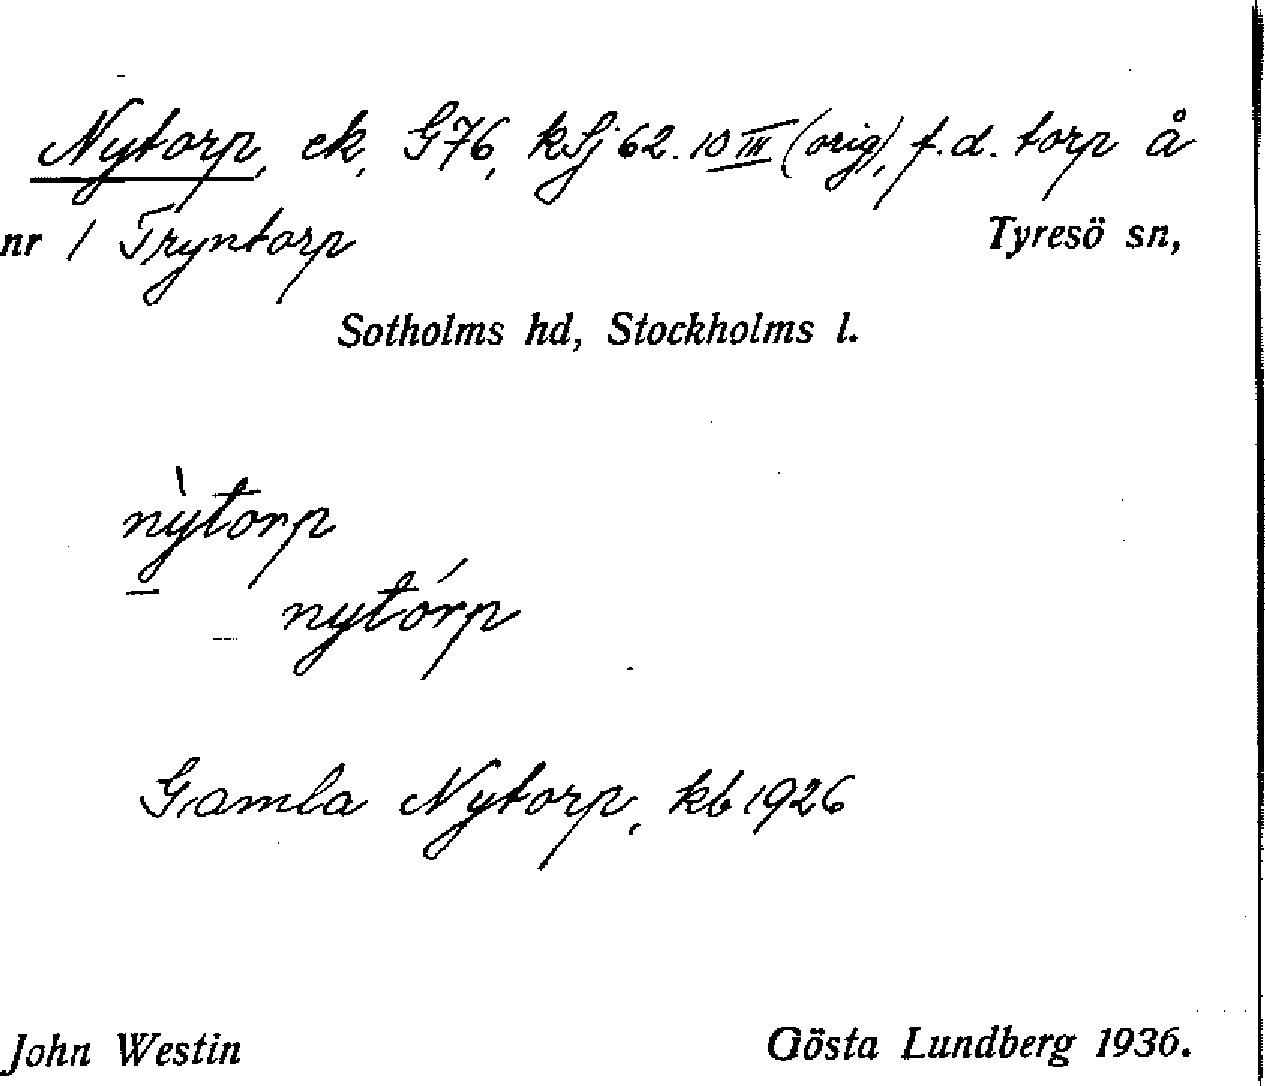 Nytorp, ek, G76, kSj 62. 10 III (orig), f.d. torp å
nr 1 Tryntorp Tyresö sn,
Sotholms hd, Stockholms l.
nỳtorp
nytórp
Gamla Nytorp, kb 1926
John Westin Gösta Lundberg 1936.